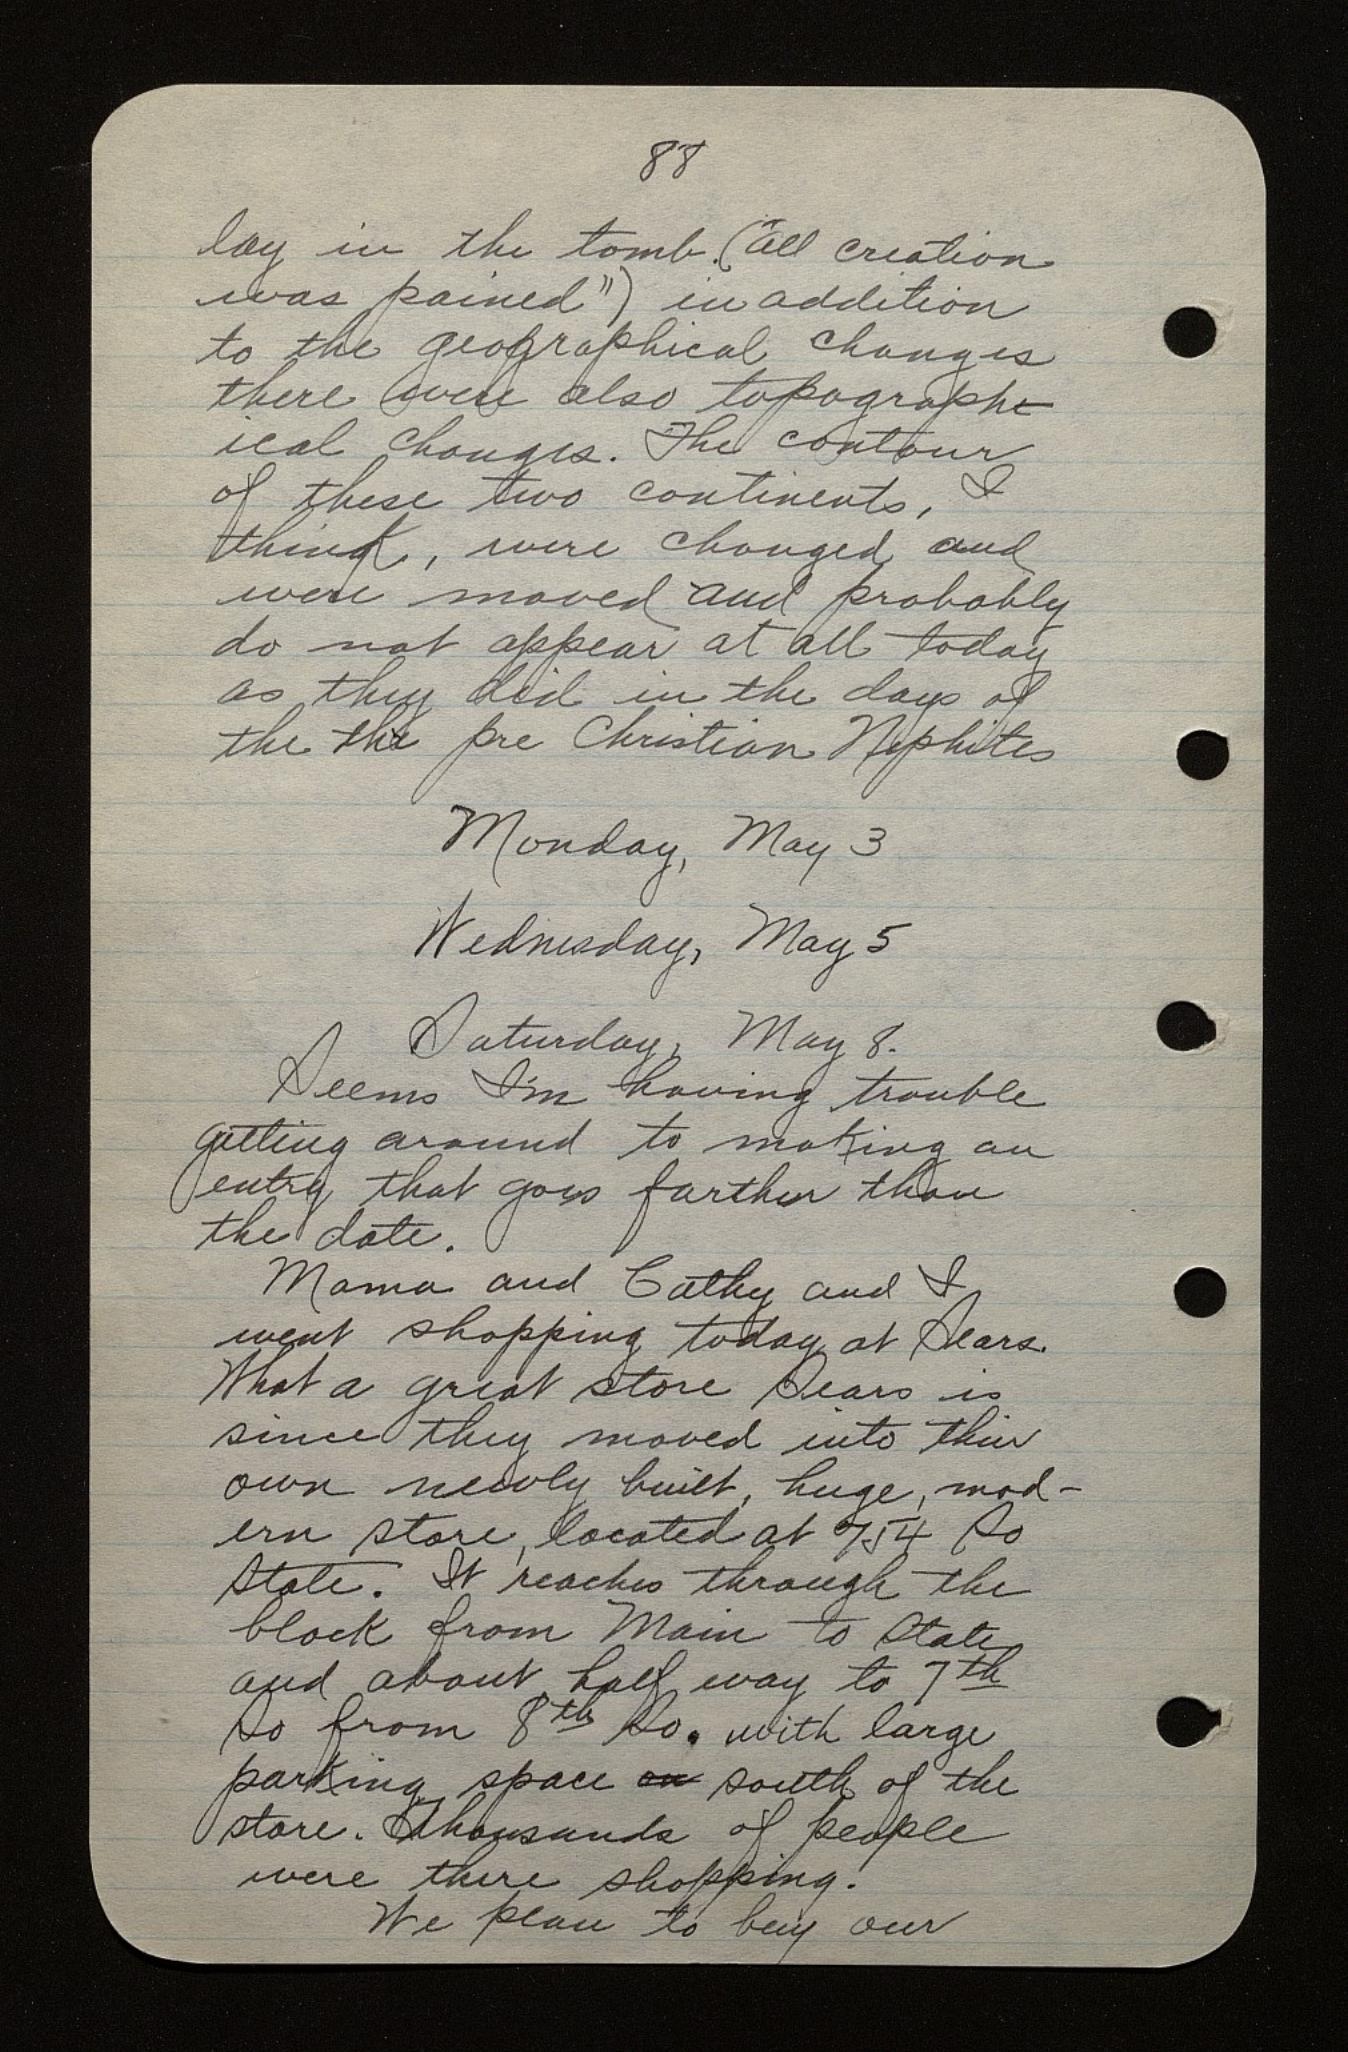 88
lay in the tomb. ("all creation
was pained") in addition
to the geographical changes
there were also topograph-
ical changes. The contour
of these two continents, I
think, were changed and
were moved and probably
do not appear at all today
as they did in the days of
the the pre Christian Nephites
Monday, May 3
Wednesday, May 5
Saturday, May 8.
Seems I'm having trouble
getting around to making an
entry that goes farther than
the date.
Mama and Cathy and I
went shopping today at Sears.
What a great store Sears is
since they moved into their
own newly built, huge, mod-
ern store, located at 754 So
State. It reaches through the
block from Main to State
and about half way to 7th
So from 8th So. with large
parking space on south of the
store. Thousands of people
were there shopping.
We plan to buy our